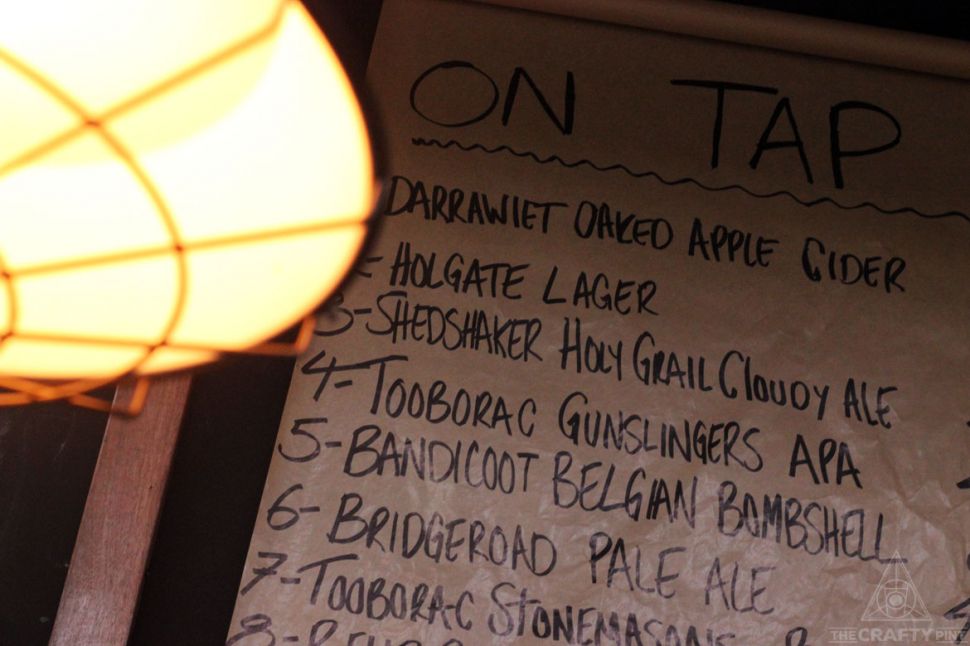 ON TAP
DARRAWIET OAKED APPLE CIDER
- HOLGATE LAGER
3-SHEDSHAKER HOLY GRAIL CLOUDY ALE
4-TOOBORAC GUNSLINGERS APA
5-BANDICOOT BELGIAN BOMBSHELL
6-BRIDGEROAD PALE ALE
7-TOOBORAC STONEMASONS
8-
THE CRAFTY PINT